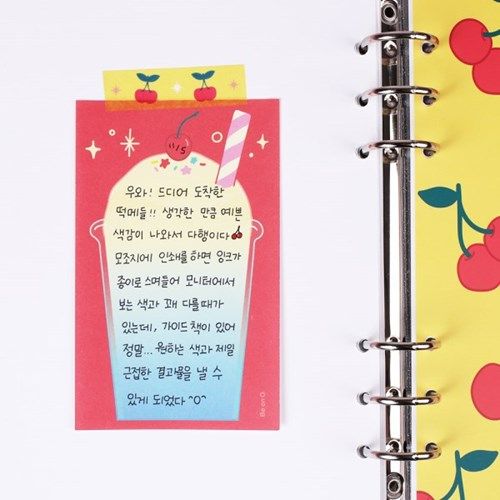 우와! 드디어 도착한
떡메들!! 생각한 만큼 예쁜
색감이 나와서 다행이다
모조지에 인쇄를 하면 잉크가
종이로 스며들어 모니터에서
보는 색과 꽤 다를때가
있는데, 가이드책이 있어
정말... 원하는 색과 제일
근접한 결과물을 낼 수
있게 되었다 ^0^